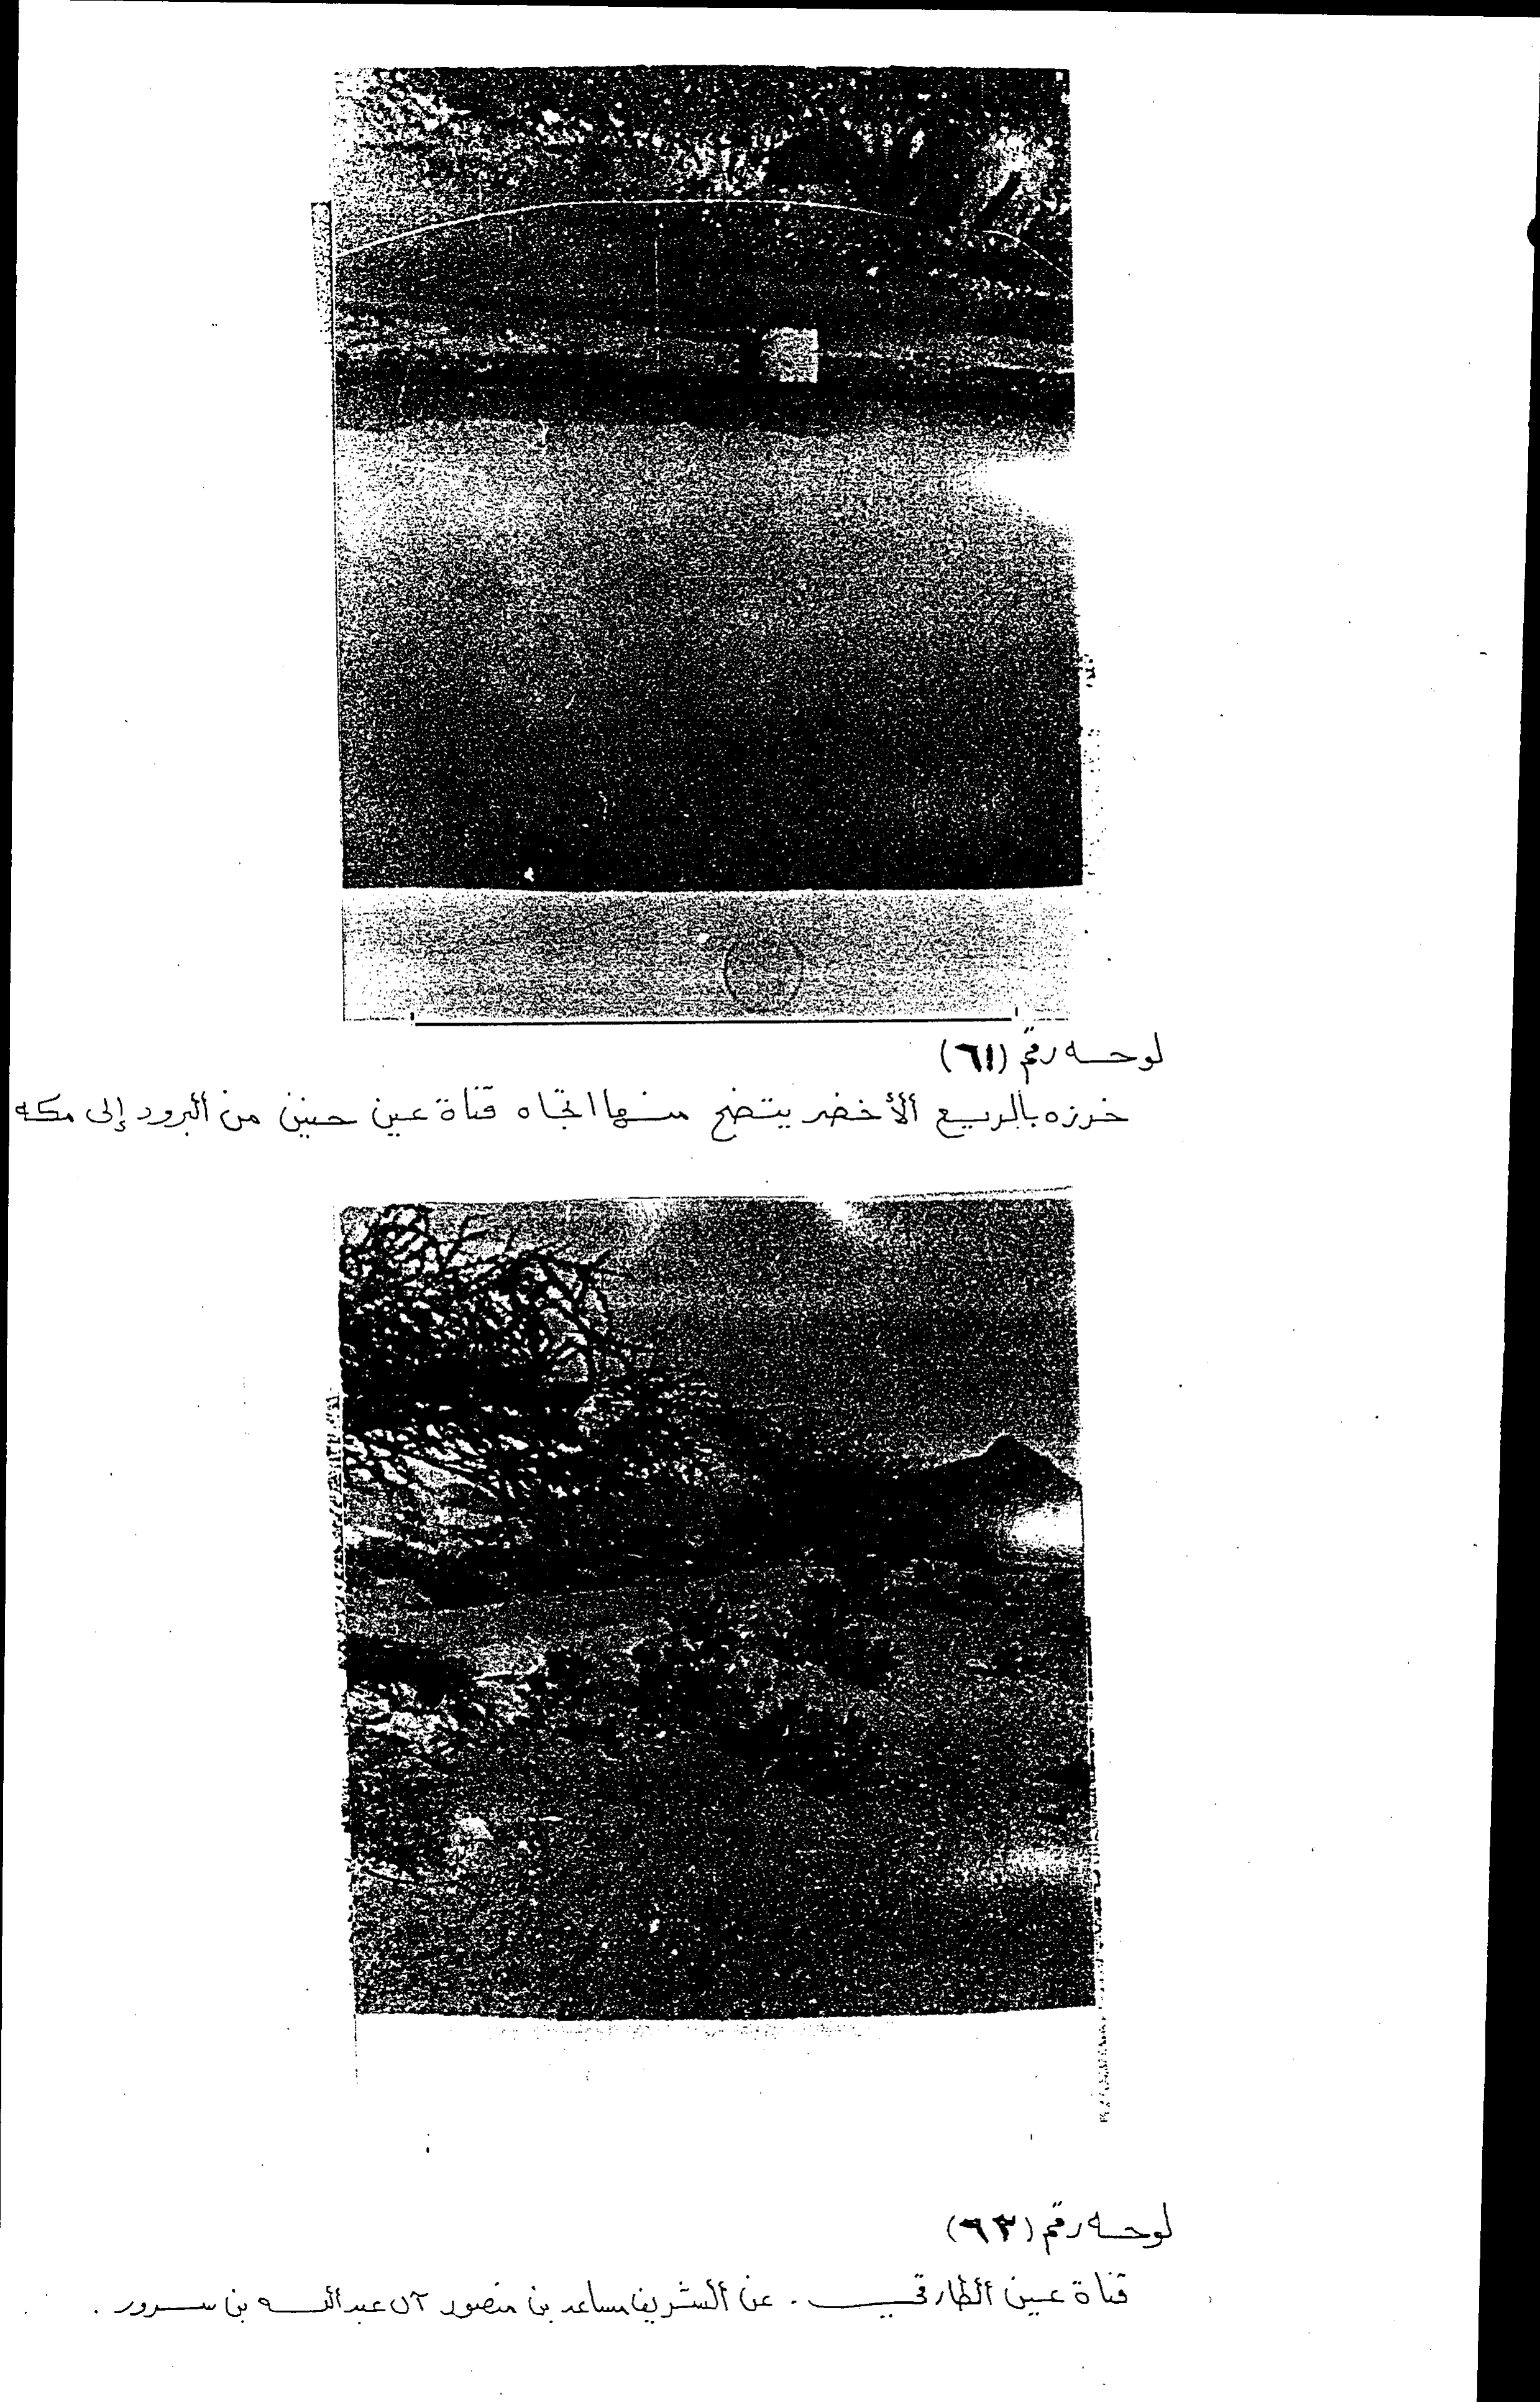 لوحـه رقم (٦١)
خرزه بالريع الأخضر يتضح منها اتجاه قناة عين حنين من البرود إلى مكه
لوحـه رقم (٦٢)
قناة عين الطارقي . عن الشريف مساعد بن منصور آل عبدالله بن سرور .